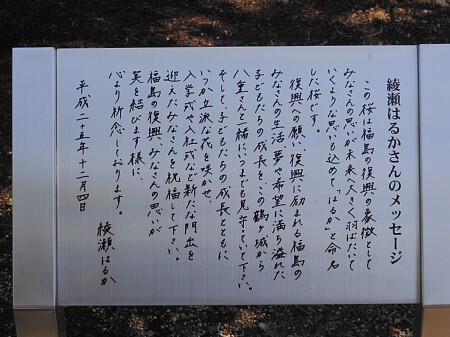 綾瀬はるかさんのメッセージ
この桜は福島の復興の象徴として
みなさんの思いが未来へ大きく羽ばたいて
いくような思いも込めて「はるか」と命名
した桜です。
復興への願い、復興に励まれる福島の
みなさんの生活、夢や希望に満ち溢れた
子どもたちの成長を、この鶴ヶ城から
八重さんと一緒にいつまでも見守ていて下さい。
そして、子どもたちの成長とともに
いつか立派な花を咲かせ
入学式や入社式など新たな門出を
迎えたみなさんを祝福して下さい。
福島の復興、みなさんの思いが
実を結びます様に
心より祈念しております。
平成二十五年十二月四日
綾瀬はるか